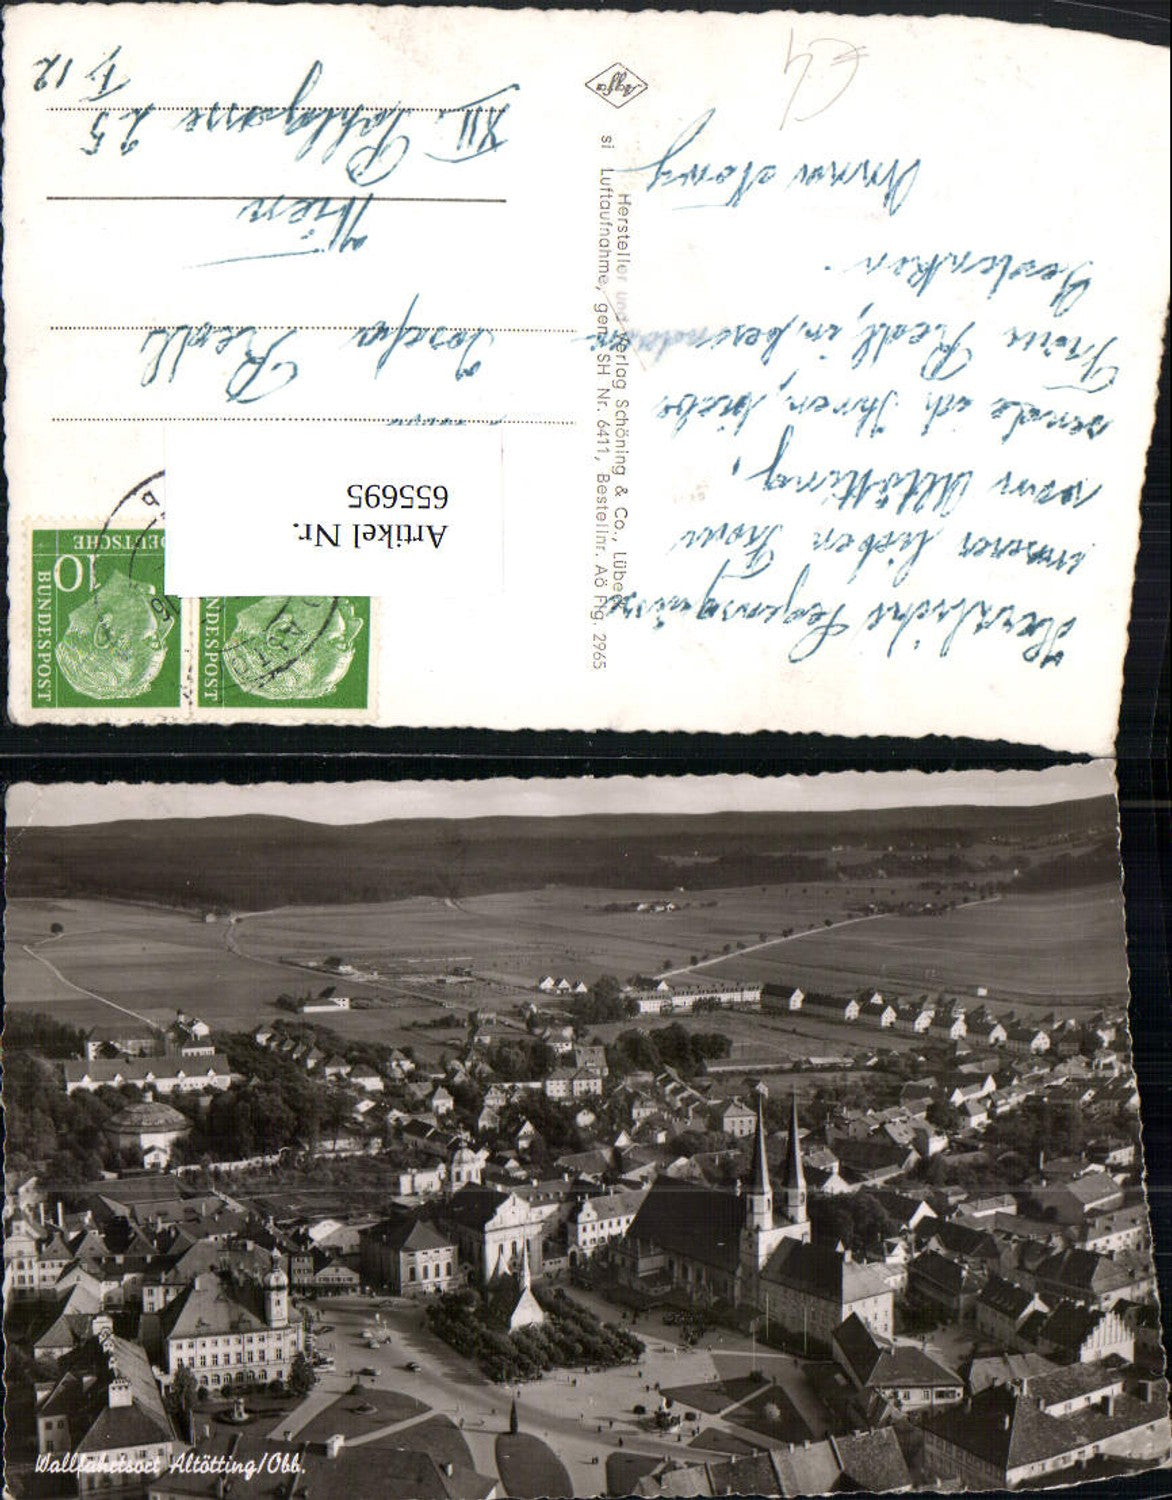 Herzliche Segensgrüsse
unserer lieben Frau
von Altötting,
sende ich Ihnen, liebe
Frau Redl, im besonderen
Gedenken.
Anna
€ 4
Agfa
Hersteller und Verlag Schöning & Co., Lübeck
si Luftaufnahme, gen. SH Nr. 6411, Bestellnr. Aö Flg. 2965
DEUTSCHE
10
BUNDESPOST
BUNDESPOST
Artikel Nr.
655695
Josefa Redl
Wien
XII. Pohlgasse 25
T, 12
Wallfahrtsort Altötting/Obb.